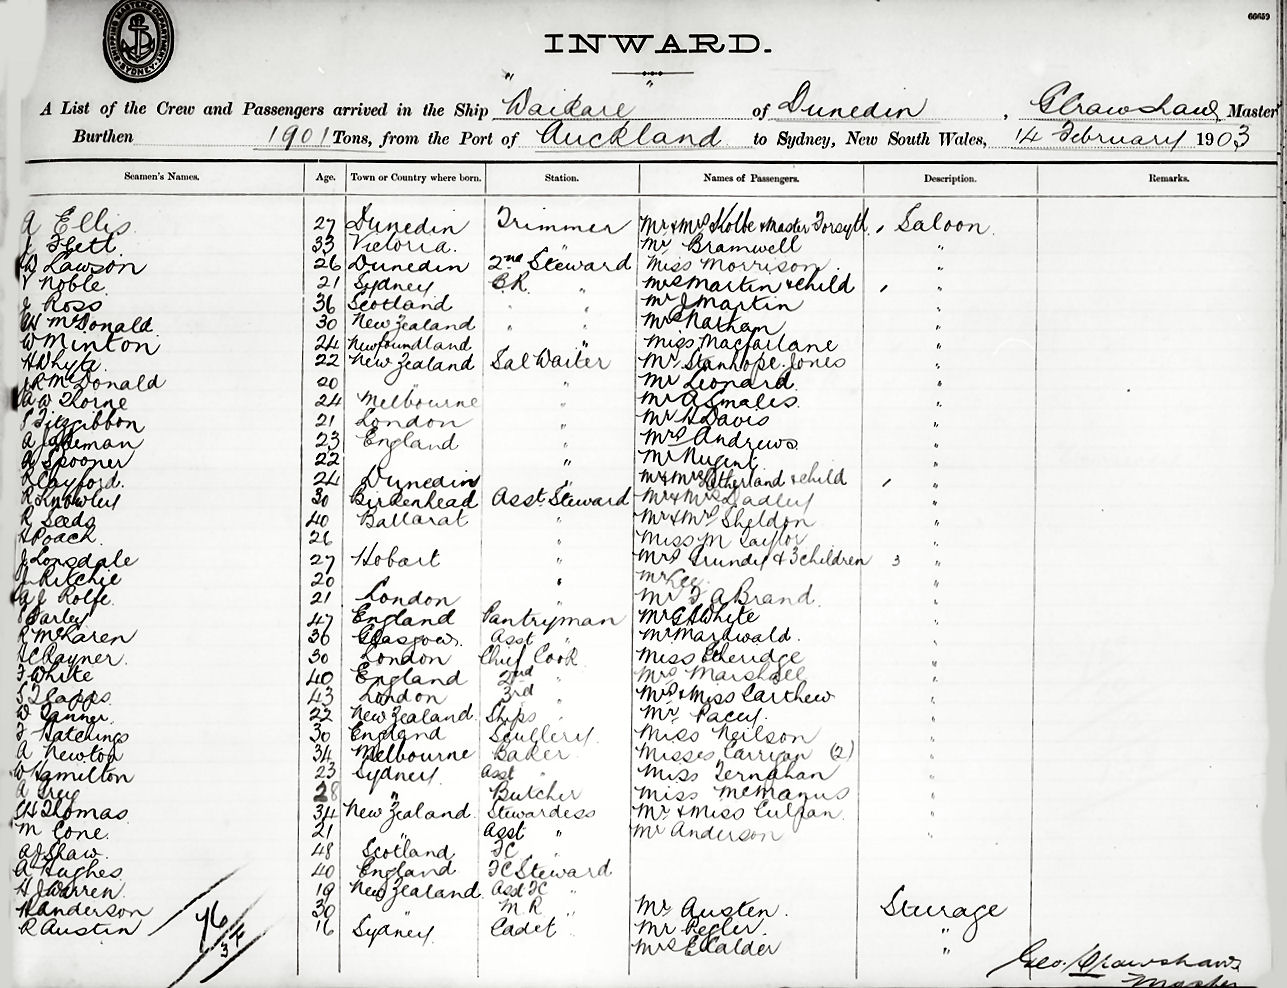 SHIPPING MASTERS DEPARTMENT SYDNEY
66659
INWARD.
A List of the Crew and Passengers arrived in the Ship "Waikare" of Dunedin, G Crawshaw Master
Burthen 1901 Tons, from the Port of Auckland to Sydney, New South Wales, 14 February 1903
Seamen's Names. Age. Town or Country where born. Station. Names of Passengers. Description. Remarks.
A Ellis 27 Dunedin Trimmer Mr & Mrs Kolbe & Master Forsyth Saloon
J Flett 33 Victoria. " Mr Bramwell "
Lawson 26 Dunedin 2nd Steward Miss Morrison "
Noble 21 Sydney B.R. " Mrs Martin & child "
J Ross 36 Scotland " " Mr J Martin "
McDonald 30 New Zealand " " Mrs Nathan "
W Minton 24 Newfoundland " " Miss Macfarlane "
H Whyte 22 New Zealand Sal Waiter Mr Stanhope-Jones "
J R McDonald 20 " " Mr Leonard "
A W Thorne 24 Melbourne " Mr A Smales "
Fitzgibbon 21 London " Mr H Davis "
A 23 England " Mrs Andrews "
A Spooner 22 " " Mr Nugent "
24 Dunedin " Mr & Mrs Sutherland & child "
R Knowley 30 Birkenhead Asst Steward Mr & Mrs Dadley "
R Seeds 40 Ballarat " Mr & Mrs Sheldon "
H Poach 26 " " Miss M Taylor "
J Lonsdale 27 Hobart " Mrs Grundy & 3 children 3 "
J Ritchie 20 " " Mr Lee "
A J Rolfe 21 London " Mr F A Brand "
Farley 47 England Pantryman Mr G H White "
R McLaren 36 Glasgow Asst " Mr Markwald "
H C Rayner 30 London Chief Cook Miss Etheridge "
F White 40 England 2nd " Mrs Marshall "
43 London 3rd " Mrs & Miss Carthew "
W Tanner 22 New Zealand Ships " Mr Pacey "
F Hatchings 30 England Scullery Miss Neilson "
A Newton 34 Melbourne Baker Misses Carrigan (2) "
W Hamilton 23 Sydney Asst " Miss Ternahan "
A Grey 28 " Butcher Miss McManus "
Thomas 34 New Zealand Stewardess Mr & Miss Culpan "
M Cone 21 " Asst " Mr Anderson "
A J Shaw 48 Scotland FC "
A Hughes 40 England FC Steward
H J Warren 19 New Zealand Asst FC "
H Anderson 30 " M.R " Mr Austen Steerage
R Austin 16 Sydney Cadet " Mr Pegler "
Mrs E Calder "
76
3 F
Geo. Crawshaw
Master